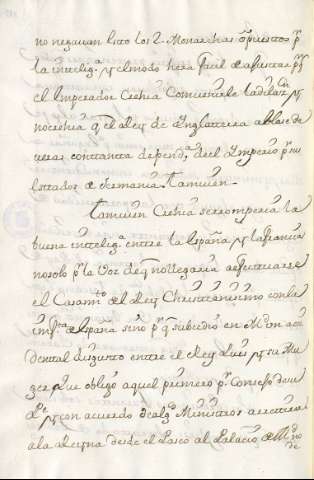 no negauan esto los 2. Monarchas opuestos pr
la intelig.a y el modo hera facil de ajustar pq
el Imperador Crehia Comunicarle la dilaz.on y
no crehia q el Rey de Inglaterra ablase de
veras con tanta depend.a del Imperio pr sus
estados de Alemania. tamvien.
tamvien Crehia se romperia la
buena intelig.a entre la españa y la francia
no solo pr la Voz de q no llegaria a efectuarse
el Casam.to del Rey Christianisimo con la
inf.ta de españa sino pr q subcedio en M.d un acci
dental disgusto entre el Rey Luis y su Mu
ger, que obligo aquel primero pr Consejo de su
P.e y con acuerdo de alg.s Ministros a retirar
a la Reyna desde el Paseo al Palacio de M.d